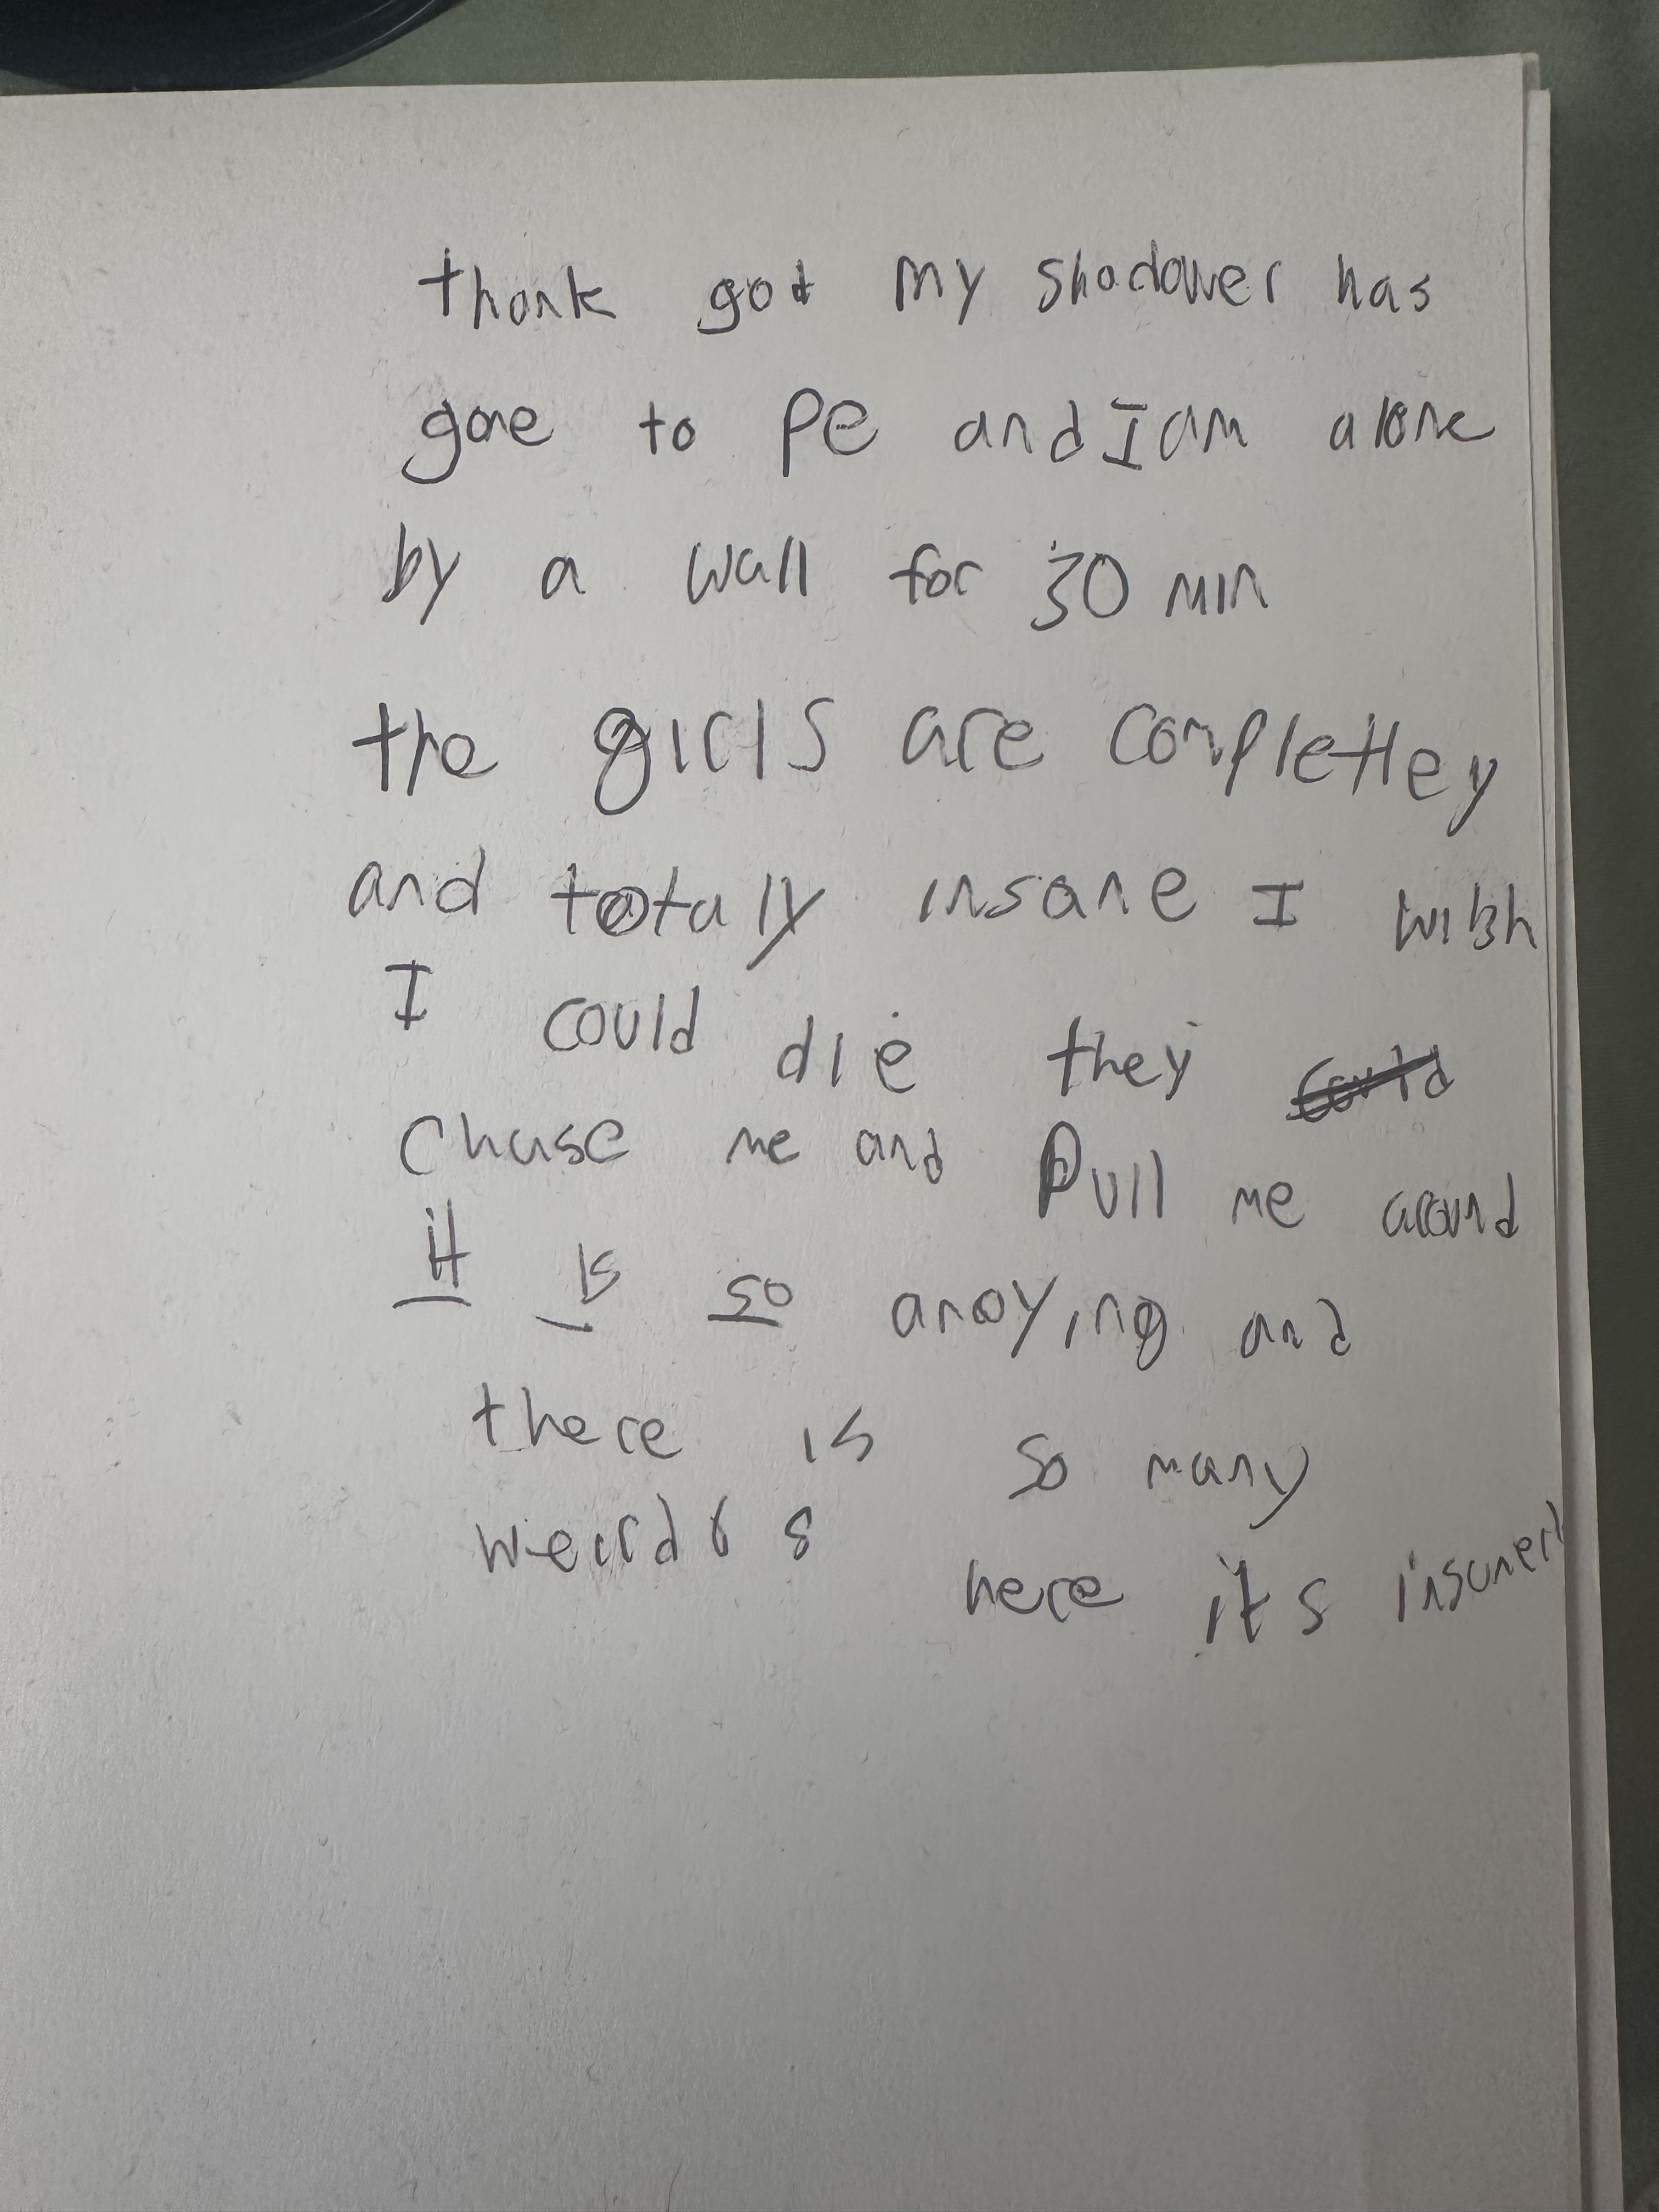 thank god my shadower has
gone to PE and I am alone
by a wall for 30 min
the girls are completley
and totaly insane I wish
I could die they could
chase me and Pull me around
it is so anoying and
there is so many
weirdos here its insane!!